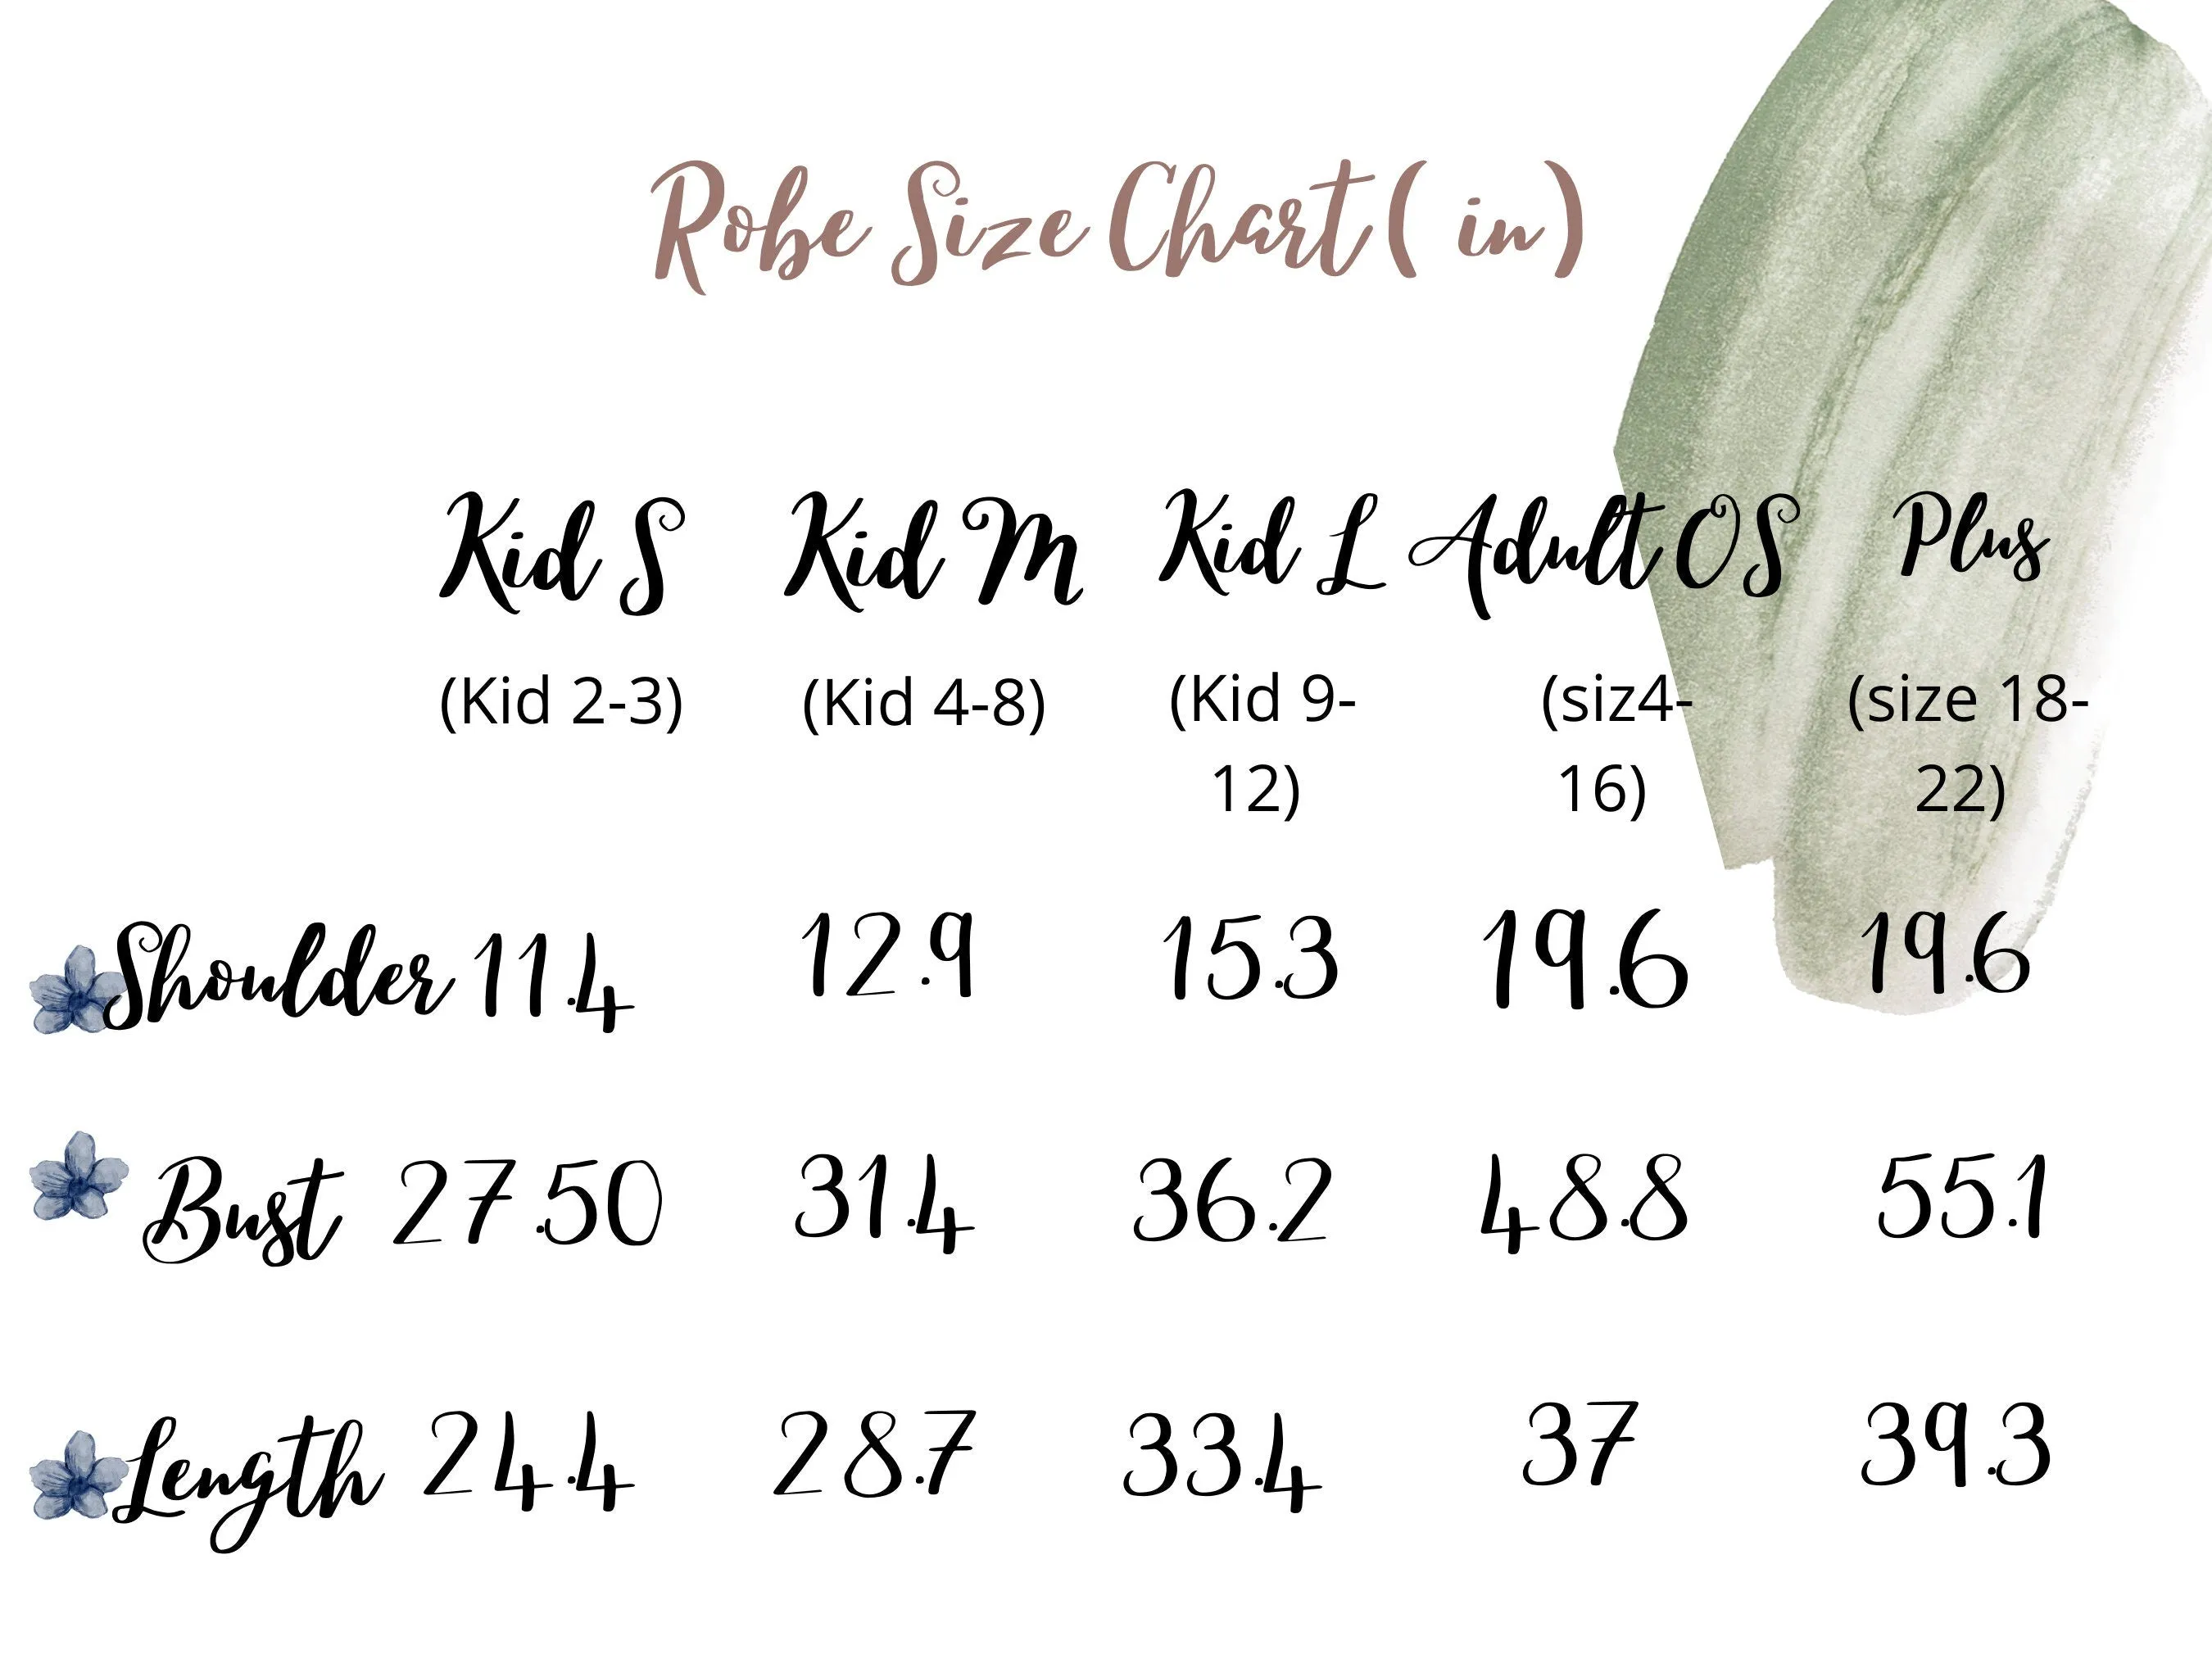 Robe Size Chart ( in)
Kid S Kid M Kid L Adult OS Plus
(Kid 2-3) (Kid 4-8) (Kid 9- (siz4- (size 18-
12) 16) 22)
Shoulder 11.4 12.9 15.3 19.6 19.6
Bust 27.50 31.4 36.2 48.8 55.1
Length 24.4 28.7 33.4 37 39.3